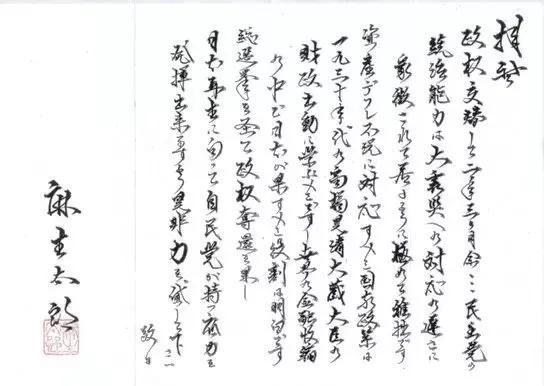 拝啓
政権交替して二年三ヶ月余 民主党の
統治能力は大震災への対応の遅さに
象徴されて居るように極めて稚拙です
資産デフレ不況に対応すべき国家政策は
一九三十年代の高橋是清大蔵大臣の
財政出動に学ぶべきです 世界の金融収縮
の中で日本が果すべき役割は明白です
総選挙を経て政権奪還を果し
日本再生に向って自民党が持つ底力を
発揮出来ますよう是非力を貸して下さい
敬具
麻生太郎